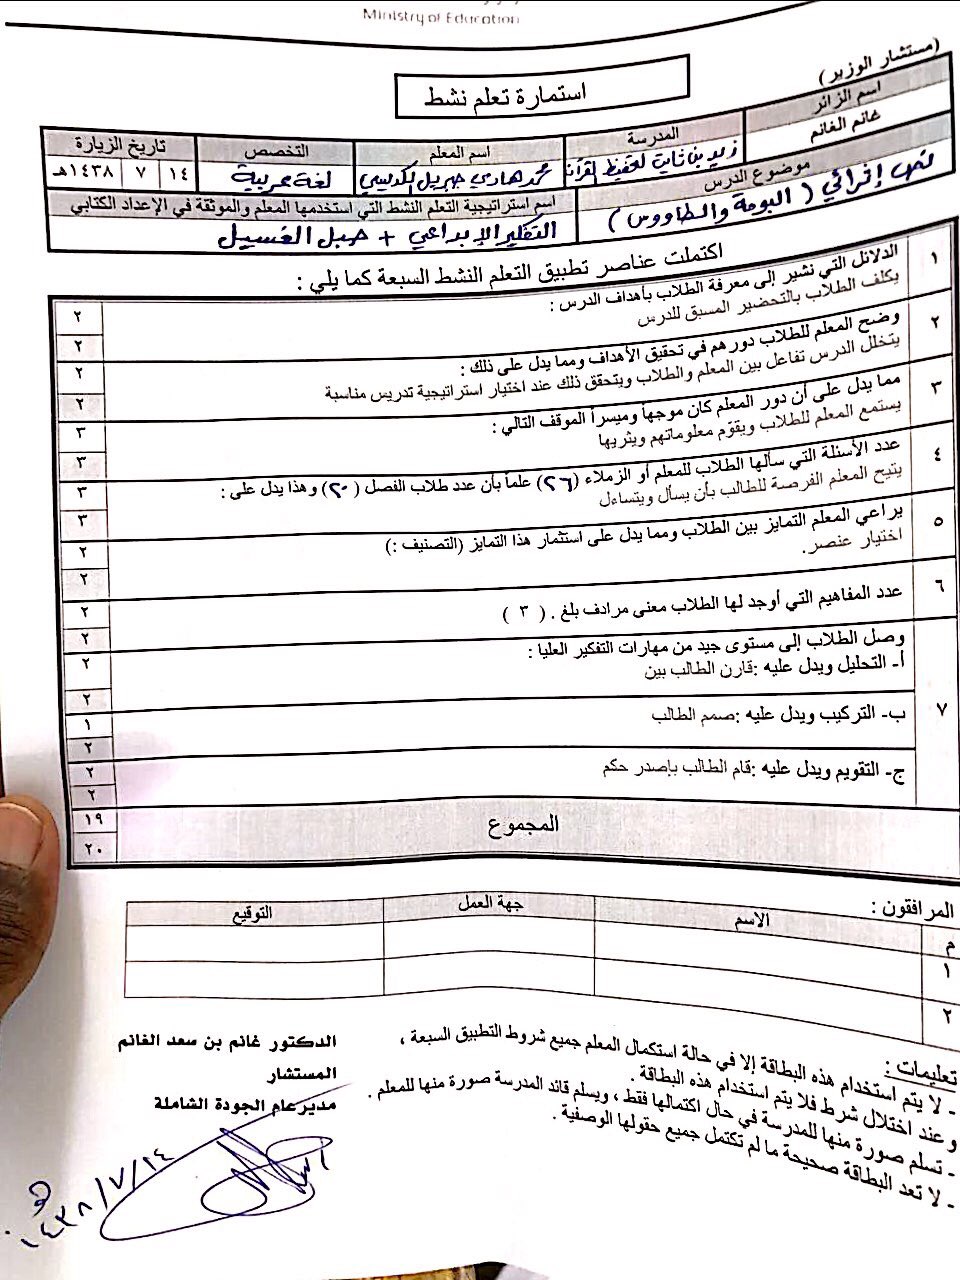 Ministry of Education
(مستشار الوزير)
استمارة تعلم نشط
اسم الزائر
المدرسة
اسم المعلم
التخصص
تاريخ الزيارة
غانم الغانم
زيد بن ثابت لتحفيظ القرآن
محمد هادي جبريل
لغة عربية
١٤ ٧ ١٤٣٨هـ
موضوع الدرس
اسم استراتيجية التعلم النشط التي استخدمها المعلم والموثقة في الإعداد الكتابي
نص إثرائي (البومة والطاووس)
التفكير الإبداعي + حبل الغسيل
اكتملت عناصر تطبيق التعلم النشط السبعة كما يلي :
١
الدلائل التي تشير إلى معرفة الطلاب بأهداف الدرس :
٢
يكلف الطلاب بالتحضير المسبق للدرس
٢
٢
وضح المعلم للطلاب دورهم في تحقيق الأهداف ومما يدل على ذلك :
٢
يتخلل الدرس تفاعل بين المعلم والطلاب ويتحقق ذلك عند اختيار استراتيجية تدريس مناسبة
٢
٣
مما يدل على أن دور المعلم كان موجهاً وميسراً الموقف التالي :
٣
يستمع المعلم للطلاب ويقوّم معلوماتهم ويثريها
٣
٤
عدد الأسئلة التي سألها الطلاب للمعلم أو الزملاء (٢٦) علماً بأن عدد طلاب الفصل (٢٠) وهذا يدل على :
٣
يتيح المعلم الفرصة للطالب بأن يسأل ويتساءل
٣
٥
يراعي المعلم التمايز بين الطلاب ومما يدل على استثمار هذا التمايز (التصنيف :)
٢
اختيار عنصر.
٢
٦
عدد المفاهيم التي أوجد لها الطلاب معنى مرادف بلغ . ( ٣ )
٢
٢
٧
وصل الطلاب إلى مستوى جيد من مهارات التفكير العليا :
أ- التحليل ويدل عليه :قارن الطالب بين
٢
٢
ب- التركيب ويدل عليه :صمم الطالب
١
٢
ج- التقويم ويدل عليه :قام الطالب بإصدر حكم
٢
٢
المجموع
١٩
٢٠
المرافقون :
م
الاسم
جهة العمل
التوقيع
١
٢
تعليمات :
- لا يتم استخدام هذه البطاقة إلا في حالة استكمال المعلم جميع شروط التطبيق السبعة ،
وعند اختلال شرط فلا يتم استخدام هذه البطاقة .
- تسلم صورة منها للمدرسة في حال اكتمالها فقط ، ويسلم قائد المدرسة صورة منها للمعلم .
- لا تعد البطاقة صحيحة ما لم تكتمل جميع حقولها الوصفية .
الدكتور غانم بن سعد الغانم
المستشار
مدير عام الجودة الشاملة
١٤٣٨/٧/١٤هـ